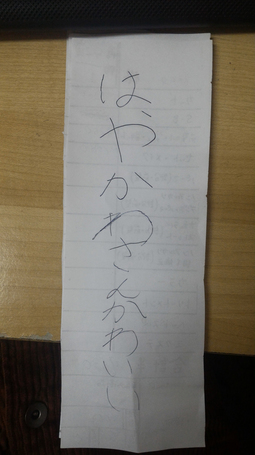 はやかわさんかわいい